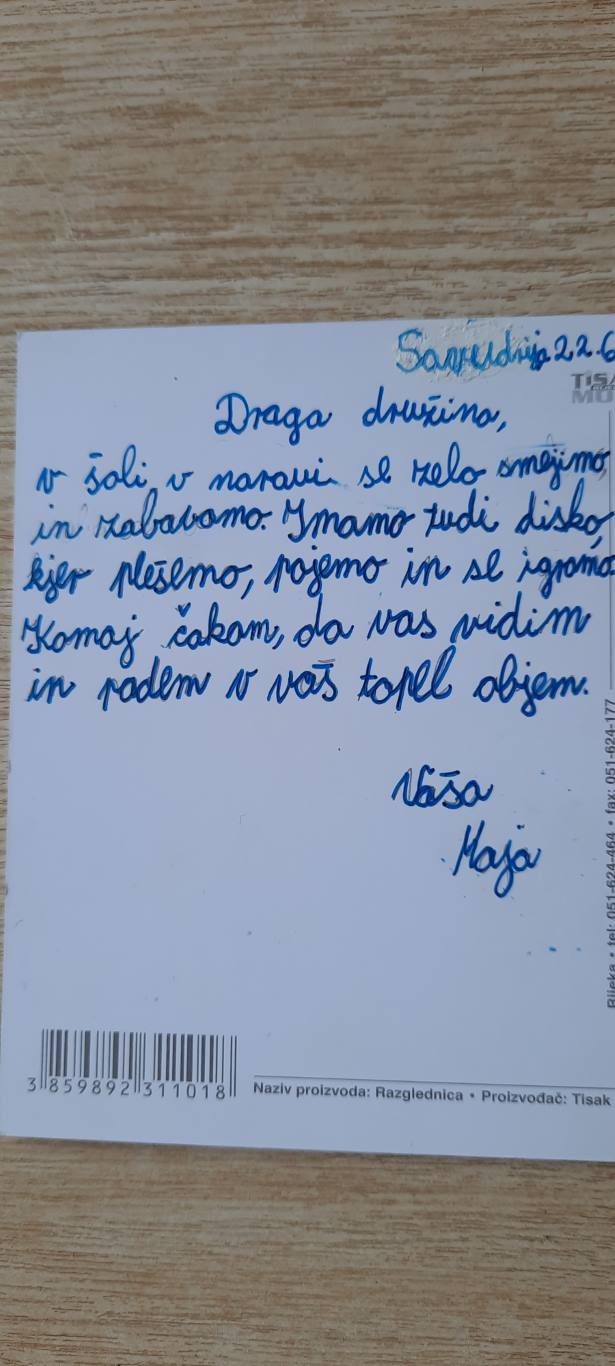 Savudrija 22.6
TISA
Draga družina,
v šoli v naravi se zelo smejimo
in zabavamo. Imamo tudi disko,
kjer plešemo, pojemo in se igramo.
Komaj čakam, da vas vidim
in padem v vaš topel objem.
Vaša
Maja
Rijeka • tel: 051-624-464 • fax: 051-624-177
3 859892 311018
Naziv proizvoda: Razglednica • Proizvođač: Tisak